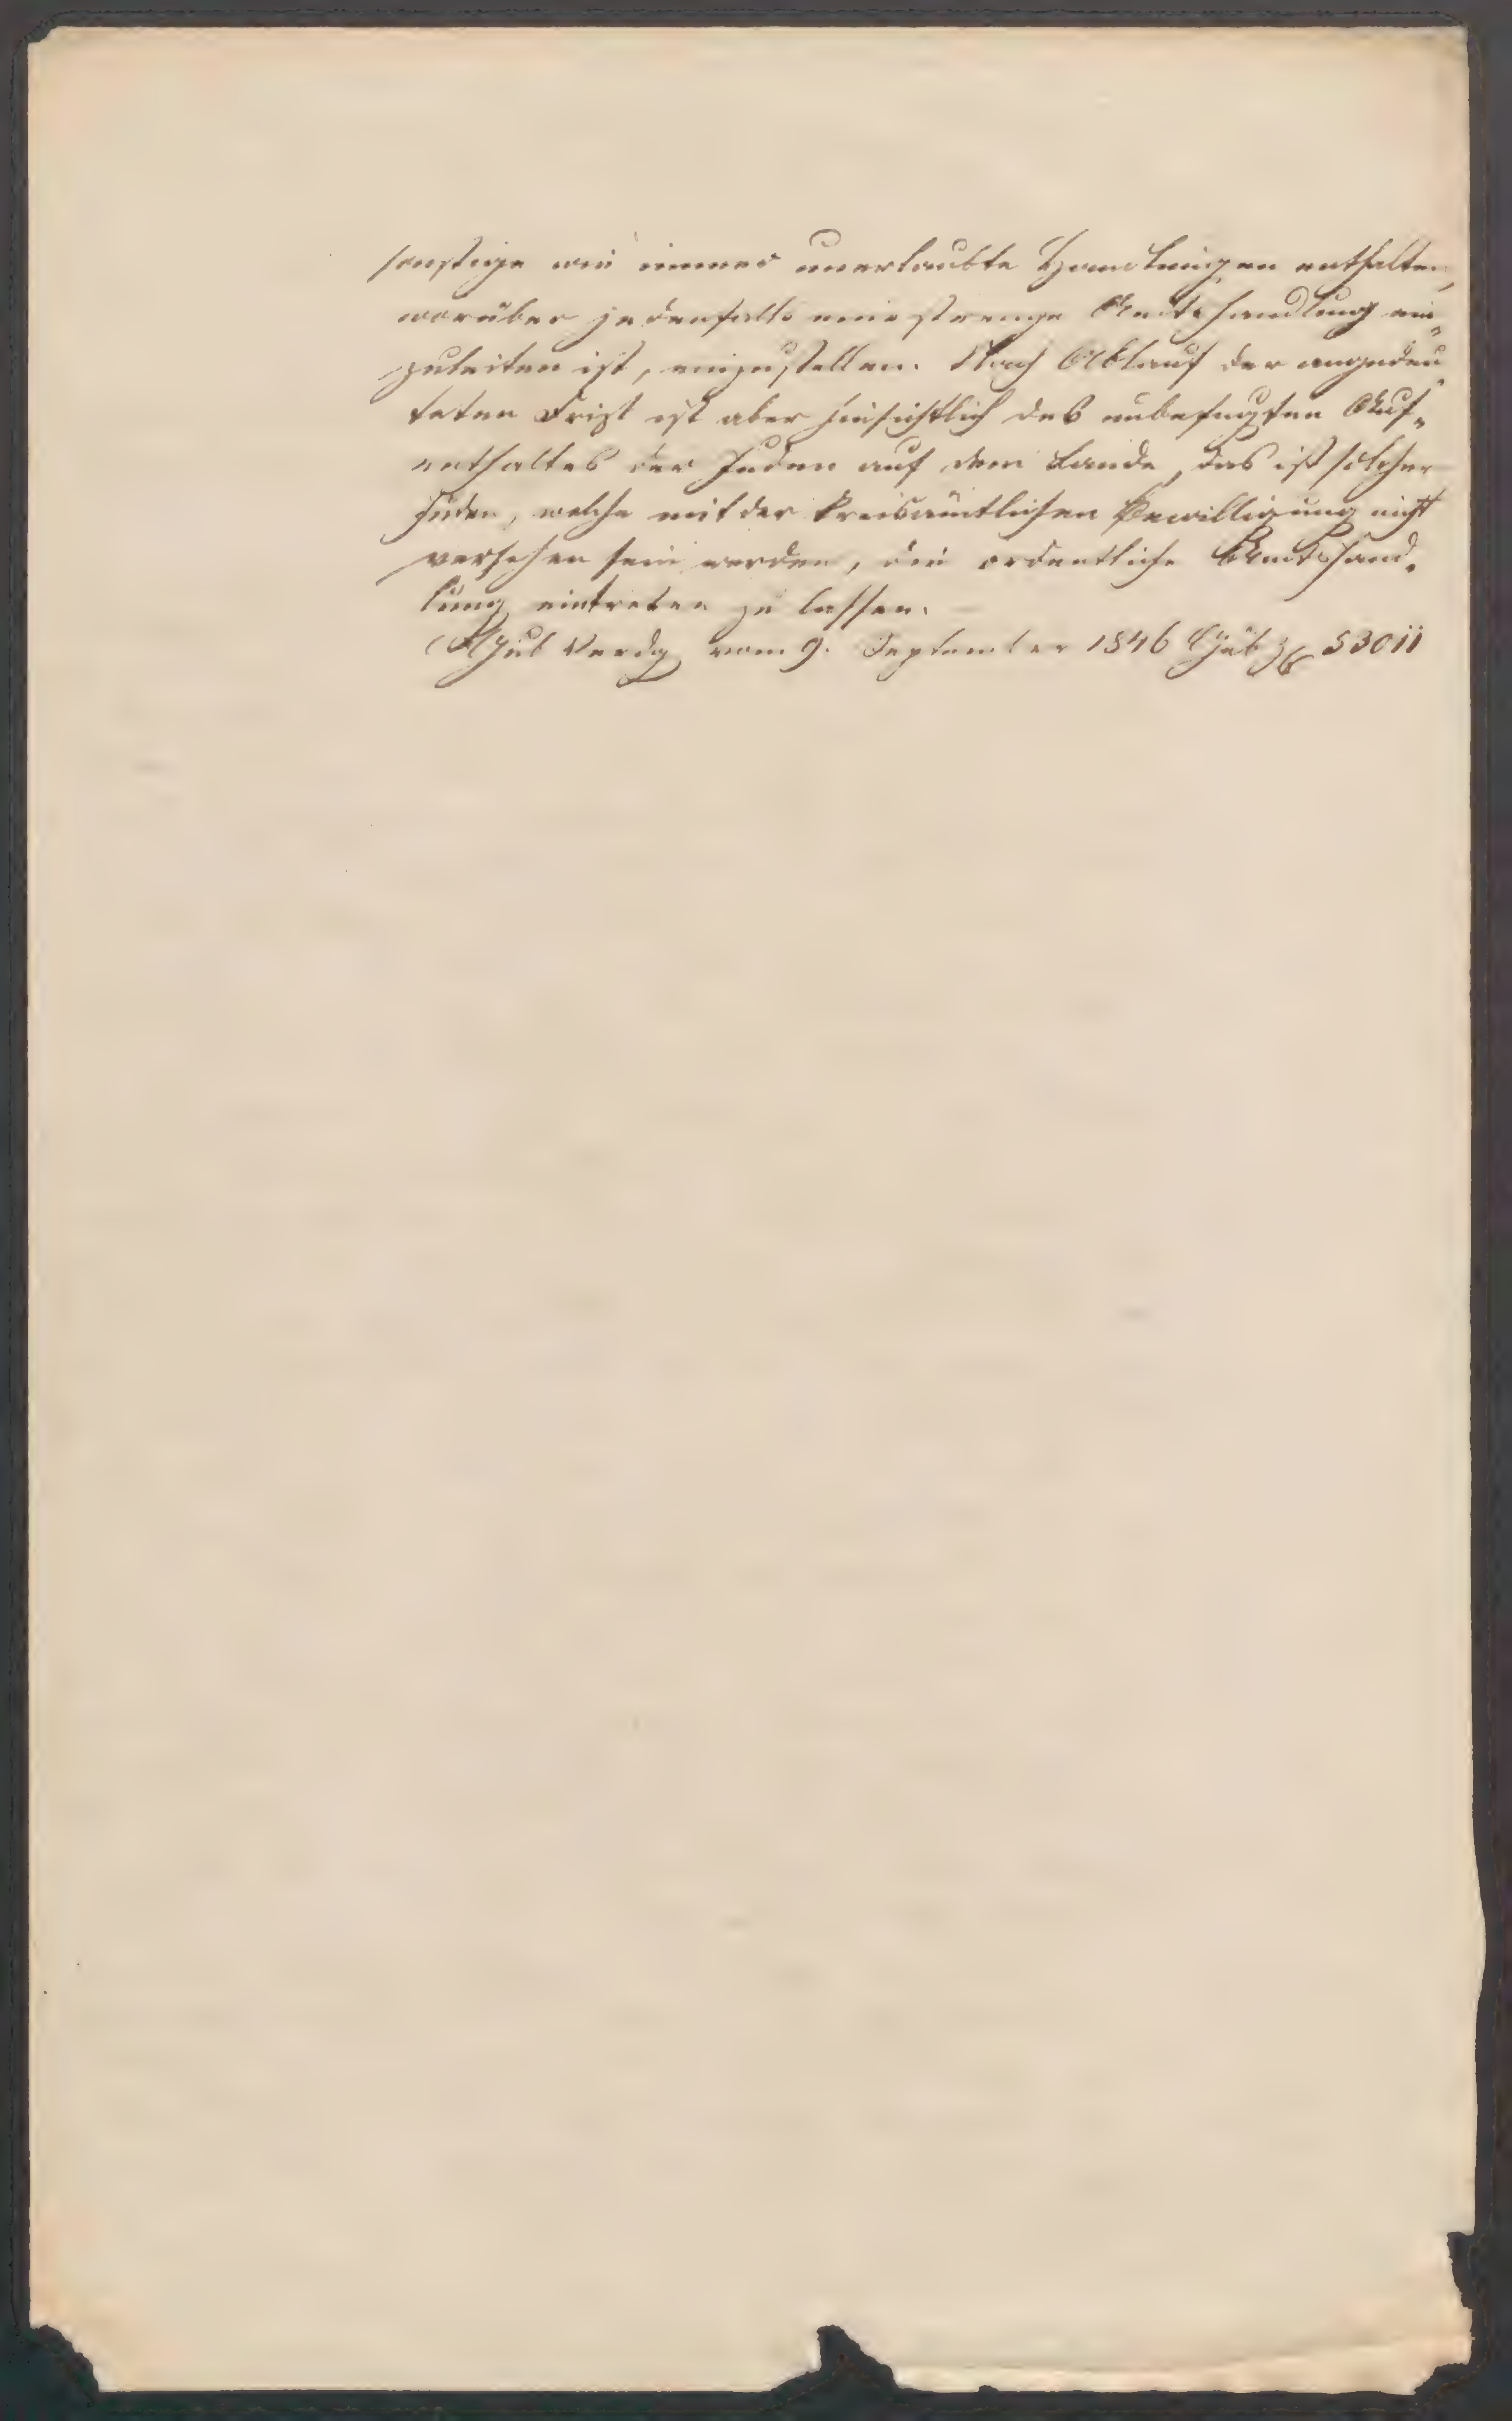 sonstige wie immer unerlaubte Handlungen enthalten,
worüber jedenfalls eine strenge Amtshandlung ein„
zuleiten ist, einzustellen. Nach Ablauf der angedeu„
teten Frist ist aber hinsichtlich des unbefugten Auf„
enthaltes der Juden auf dem Lande, das ist solcher
Juden, welche mit der kreisämtlichen Bewilligung nicht
versehen sein werden, die ordentliche Amtshand„
lung eintreten zu lassen.
Gub Verdg vom 9. September 1846 Gub Z 53011